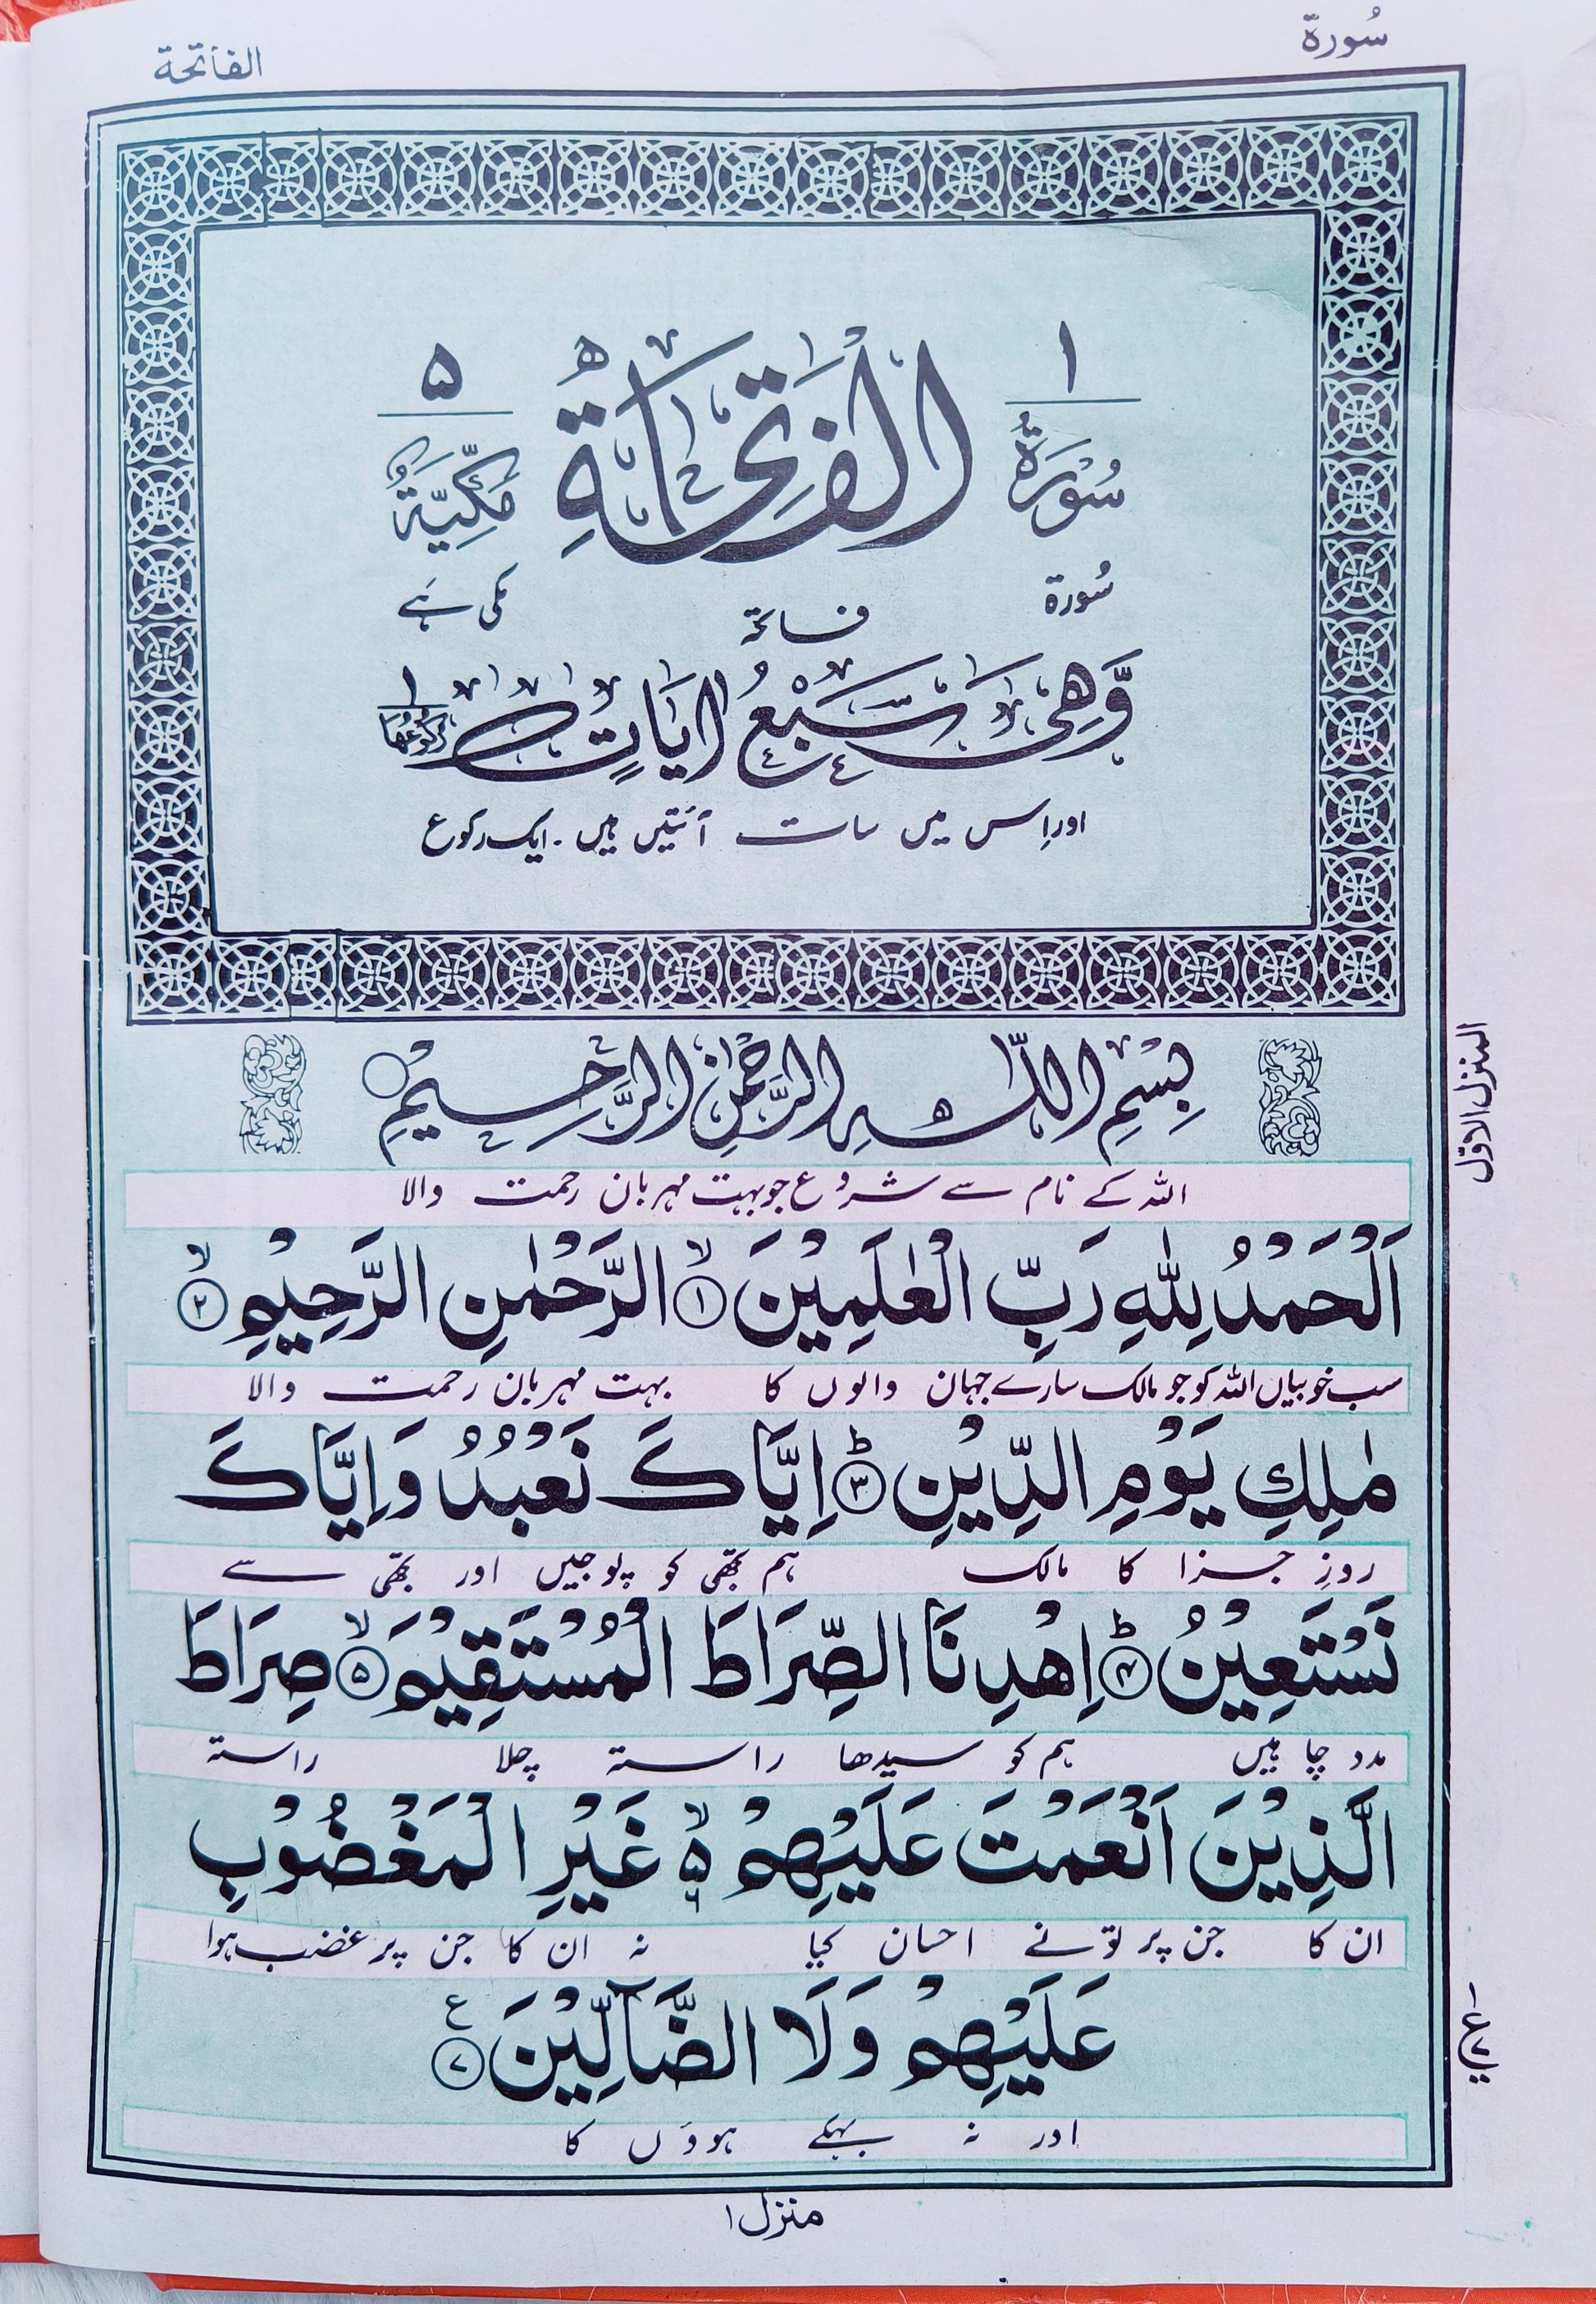 سُورة
الفاتحة
۱ ۵
سُوْرَةُ الْفَاتِحَةِ مَكِّيَّةٌ
سُورة فاتحہ مکی ہے
وَّهِیَ سَبْعُ اٰيَاتٍ ۱ رُكُوْعُهَا
اور اِس میں سات آئتیں ہیں۔ ایک رکوع
بِسْمِ اللّٰهِ الرَّحْمٰنِ الرَّحِيْمِ
اللہ کے نام سے شروع جو بہت مہربان رحمت والا
اَلْحَمْدُ لِلّٰهِ رَبِّ الْعٰلَمِيْنَ ۙ﴿۱﴾ الرَّحْمٰنِ الرَّحِيْمِ ۙ﴿۲﴾
سب خوبیاں اللہ کو جو مالک سارے جہان والوں کا بہت مہربان رحمت والا
مٰلِكِ يَوْمِ الدِّيْنِ ؕ﴿۳﴾ اِيَّاكَ نَعْبُدُ وَاِيَّاكَ
روزِ جزا کا مالک ہم تجھی کو پوجیں اور تجھی سے
نَسْتَعِيْنُ ؕ﴿۴﴾ اِهْدِنَا الصِّرَاطَ الْمُسْتَقِيْمَ ۙ﴿۵﴾ صِرَاطَ
مدد چاہیں ہم کو سیدھا راستہ چلا راستہ
الَّذِيْنَ اَنْعَمْتَ عَلَيْهِمْ ۙ۵ ۶ غَيْرِ الْمَغْضُوْبِ
ان کا جن پر تو نے احسان کیا نہ ان کا جن پر غضب ہوا
عَلَيْهِمْ وَلَا الضَّآلِّيْنَ ﴿۷﴾ ع
اور نہ بہکے ہوؤں کا
المنزل الاوّل
منزل ۱